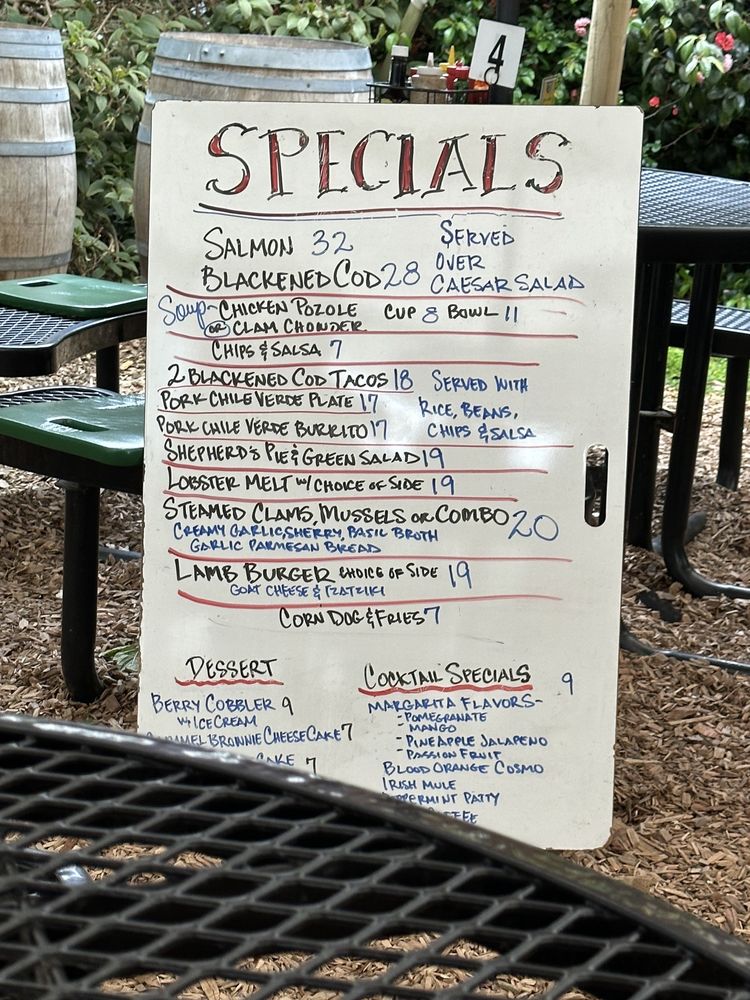 4
SPECIALS
SALMON 32
BLACKENED COD 28
SERVED
OVER
CAESAR SALAD
Soup~ CHICKEN POZOLE
OR CLAM CHOWDER
CUP 8 BOWL 11
CHIPS & SALSA 7
2 BLACKENED COD TACOS 18
PORK CHILE VERDE PLATE 17
PORK CHILE VERDE BURRITO 17
SERVED WITH
RICE, BEANS,
CHIPS & SALSA
SHEPHERD'S PIE & GREEN SALAD 19
LOBSTER MELT W/ CHOICE OF SIDE 19
STEAMED CLAMS, MUSSELS OR COMBO 20
CREAMY GARLIC, SHERRY, BASIL BROTH
GARLIC PARMESAN BREAD
LAMB BURGER CHOICE OF SIDE 19
GOAT CHEESE & TZATZIKI
CORN DOG & FRIES 7
DESSERT
BERRY COBBLER 9
W/ ICE CREAM
BROWNIE CHEESECAKE 7
CAKE 7
COCKTAIL SPECIALS 9
MARGARITA FLAVORS-
- POMEGRANATE
MANGO
- PINEAPPLE JALAPENO
- PASSION FRUIT
BLOOD ORANGE COSMO
IRISH MULE
PATTY